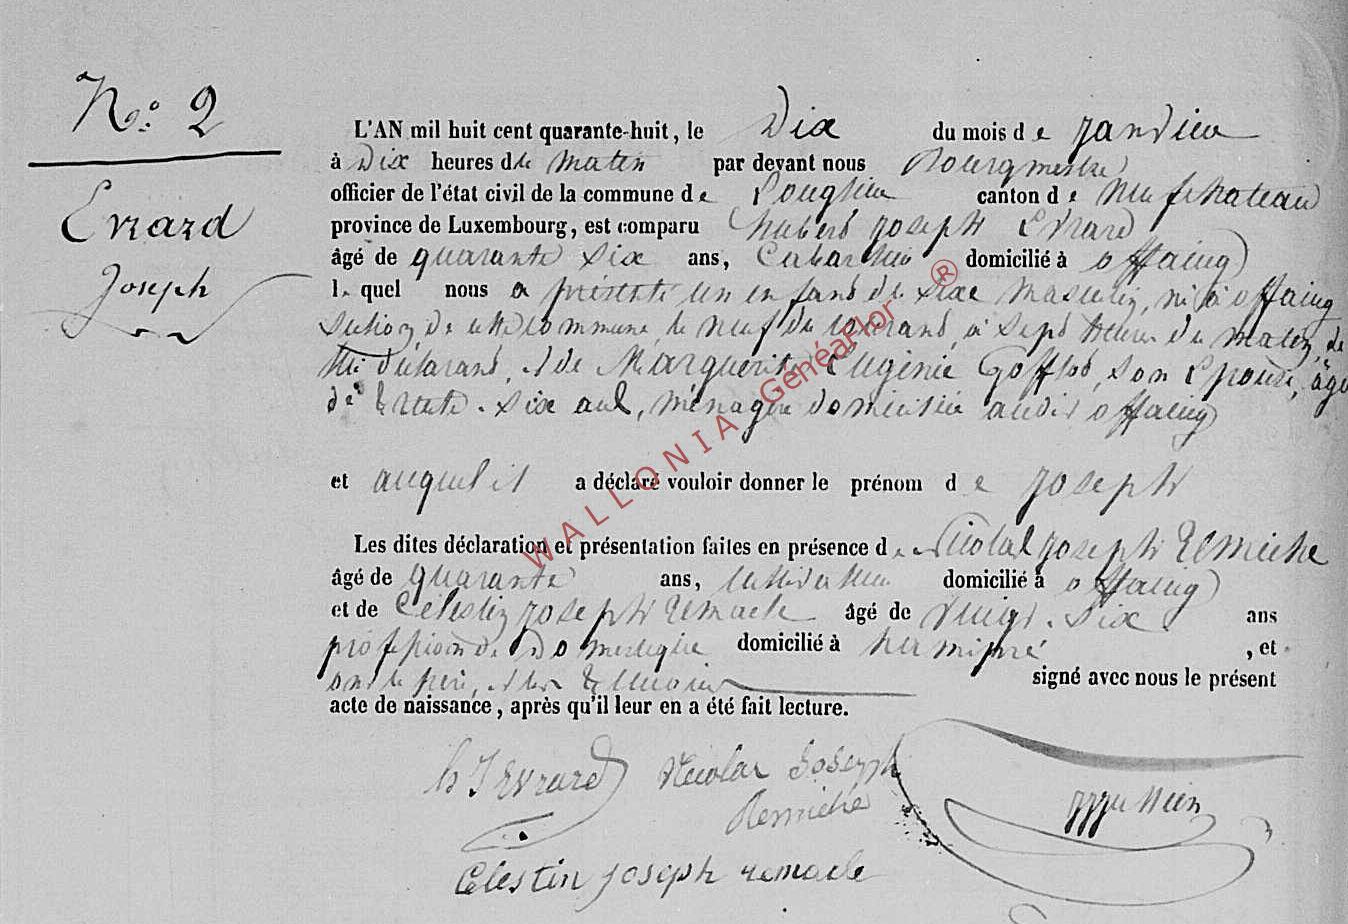 No: 2
Evrard
Joseph
L'AN mil huit cent quarante-huit, le Dix du mois de Janvier
à Dix heures du matin par devant nous Bourgmestre
officier de l'état civil de la commune de Longlier canton de Neufchateau
province de Luxembourg, est comparu hubert joseph Evrard
âgé de quarante six ans, Cabartier domicilié à offaing
lequel nous a présenté un enfant du sixe masculin, né à offaing
section de cette commune, le neuf du courant, à sept heures du matin, de
lui déclarant, et de Marguerite Eugénie Gofflot, son Epouse, âgé
de trente-six ans, ménagère domiciliée audit offaing
et auquel il a déclaré vouloir donner le prénom de joseph
Les dites déclaration et présentation faites en présence de Nicolas joseph Remiche
âgé de quarante ans, cultivateur domicilié à offaing
et de Célestin joseph Remacle âgé de vingt-six ans
profession de Domestique domicilié à hamipré, et
ont le père, et les témoins signé avec nous le présent
acte de naissance, après qu'il leur en a été fait lecture.
h J Evrard Nicolas Joseph
Remiche
Celestin joseph remacle
WALLONIA GénéaFlor ®